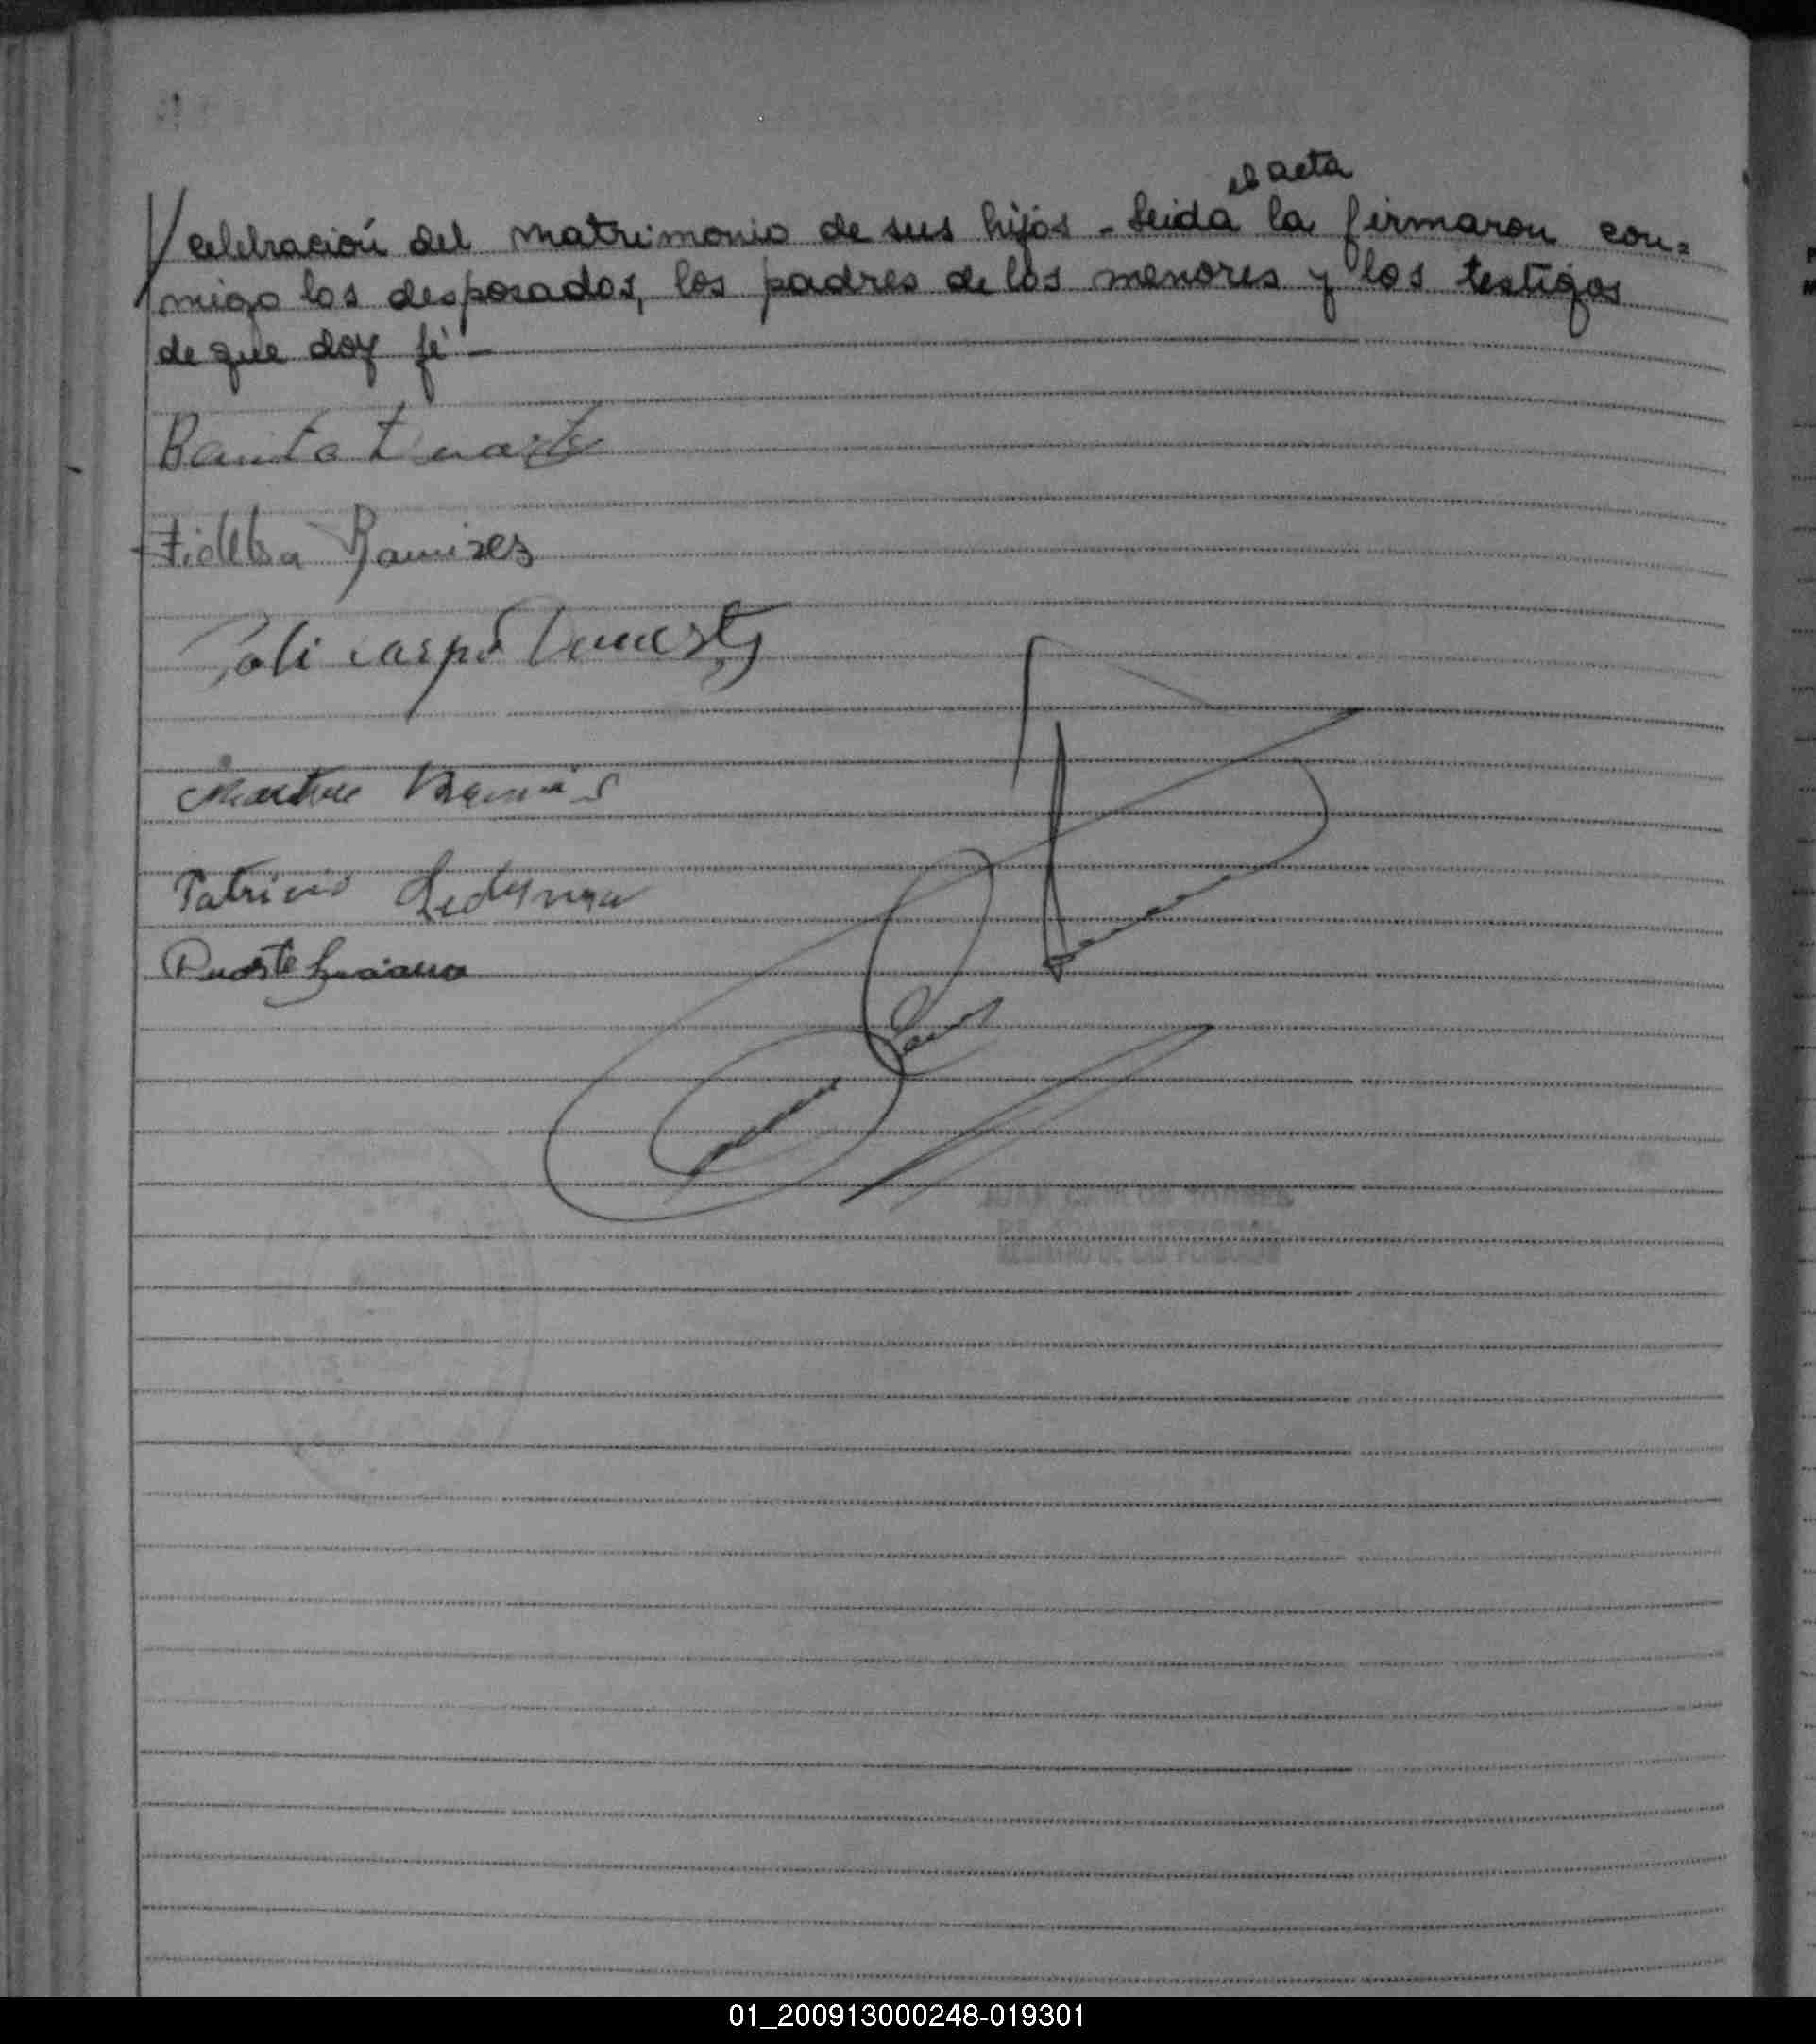 el acta
celebración del matrimonio de sus hijos - Leida la firmaron con=
migo los desposados, los padres de los menores y los testigos
de que doy fé -
Benita Duarte
Fidelsa Ramires
Poli carpo Duarte
Ramires
Patricio Ledesma
Duarte
JUAN CARLOS TORRES
REGISTRO DE LAS PERSONAS
01_200913000248-019301